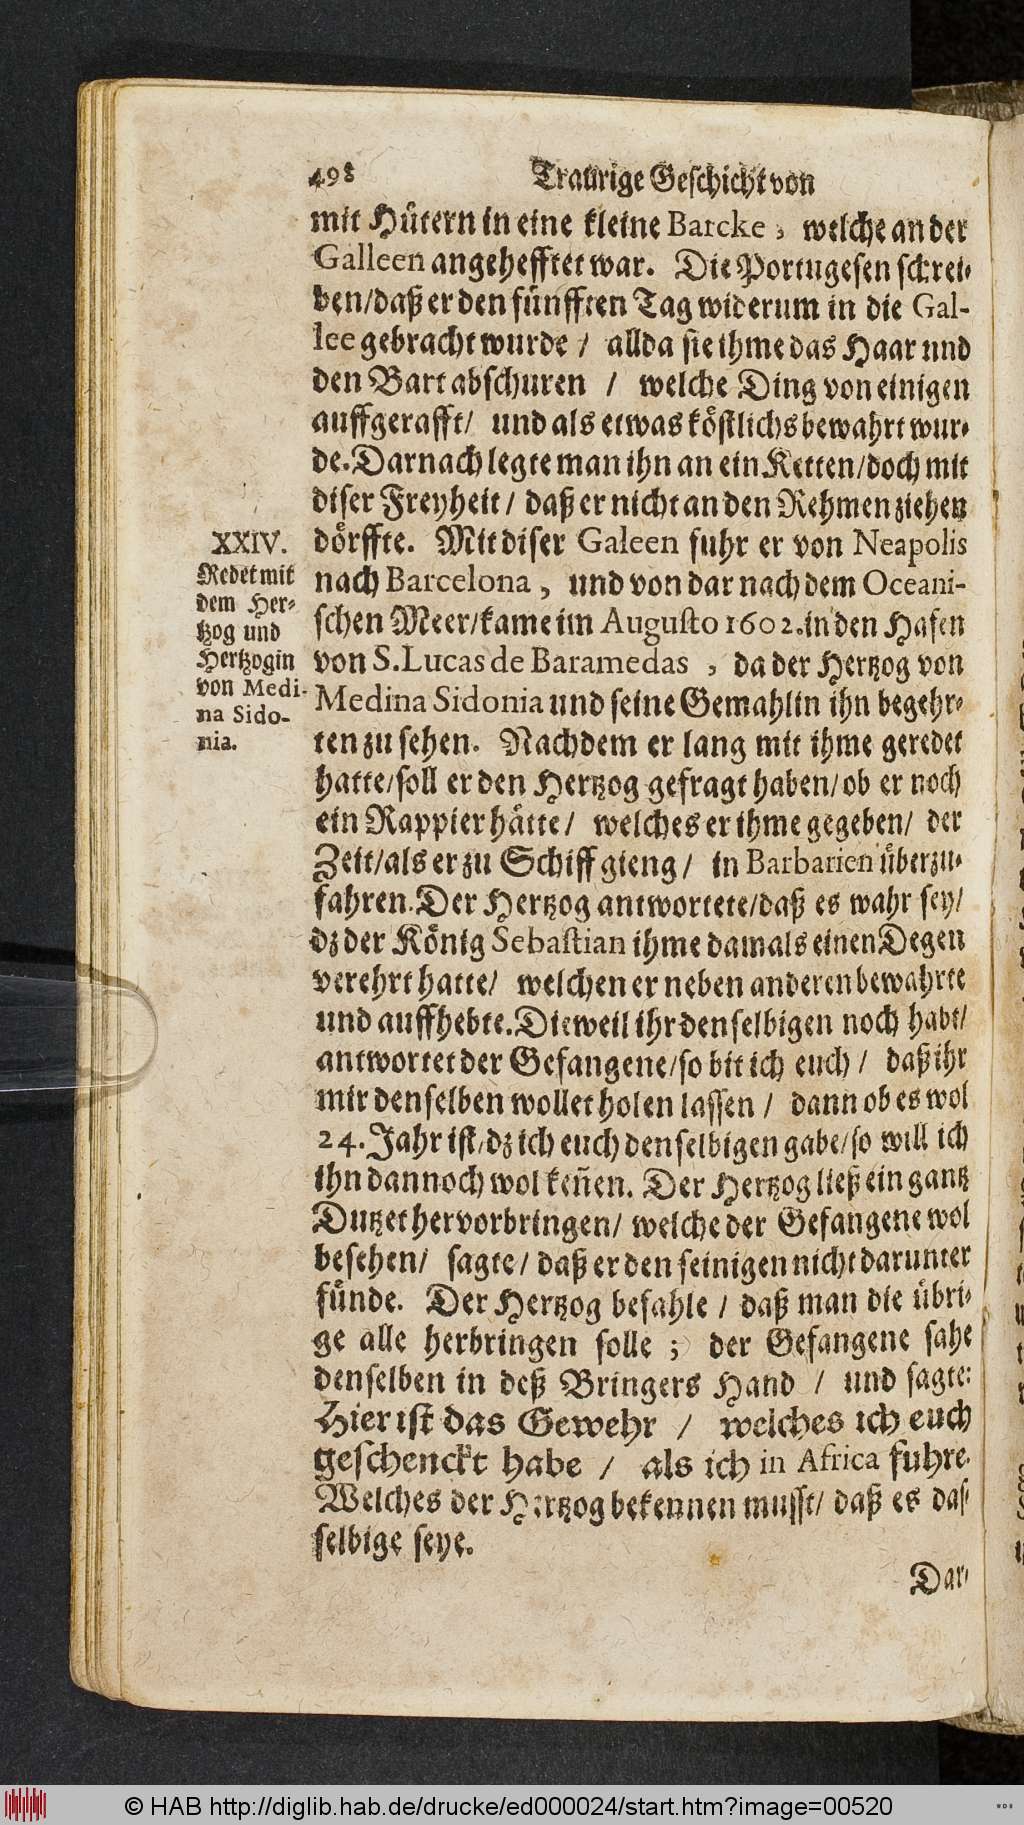 498 Traurige Geschicht von
mit Hütern in eine kleine Barcke, welche an der
Galleen angehefftet war. Die Portugesen schrei-
ben/daß er den fünfften Tag widerum in die Gal-
lee gebracht wurde / allda sie ihme das Haar und
den Bart abschuren / welche Ding von einigen
auffgerafft/ und als etwas köstlichs bewahrt wur-
de. Darnach legte man ihn an ein Ketten/doch mit
diser Freyheit / daß er nicht an den Rehmen ziehen
dörffte. Mit diser Galeen fuhr er von Neapolis
nach Barcelona, und von dar nach dem Oceani-
schen Meer/kame im Augusto 1602. in den Hafen
von S. Lucas de Baramedas, da der Hertzog von
Medina Sidonia und seine Gemahlin ihn begehr-
ten zu sehen. Nachdem er lang mit ihme geredet
hatte/soll er den Hertzog gefragt haben/ob er noch
ein Rappier hätte/ welches er ihme gegeben/ der
Zeit/als er zu Schiff gieng/ in Barbarien überzu-
fahren. Der Hertzog antwortete/daß es wahr sey/
dz der König Sebastian ihme damals einen Degen
verehrt hatte/ welchen er neben anderen bewahrte
und auffhebte. Dieweil ihr denselbigen noch habt/
antwortet der Gefangene/so bit ich euch / daß ihr
mir denselben wollet holen lassen / dann ob es wol
24. Jahr ist/dz ich euch denselbigen gabe/so will ich
ihn dannoch wol keñen. Der Hertzog ließ ein gantz
Dutzet hervorbringen/ welche der Gefangene wol
besehen/ sagte/ daß er den seinigen nicht darunter
fünde. Der Hertzog befahle / daß man die übri-
ge alle herbringen solle ; der Gefangene sahe
denselben in deß Bringers Hand / und sagte:
Hier ist das Gewehr / welches ich euch
geschenckt habe / als ich in Africa fuhre.
Welches der Hertzog bekennen musst/ daß es das-
selbige seye.
Dar-
XXIV.
Redet mit
dem Her-
tzog und
Hertzogin
von Medi-
na Sido-
nia.
© HAB http://diglib.hab.de/drucke/ed000024/start.htm?image=00520